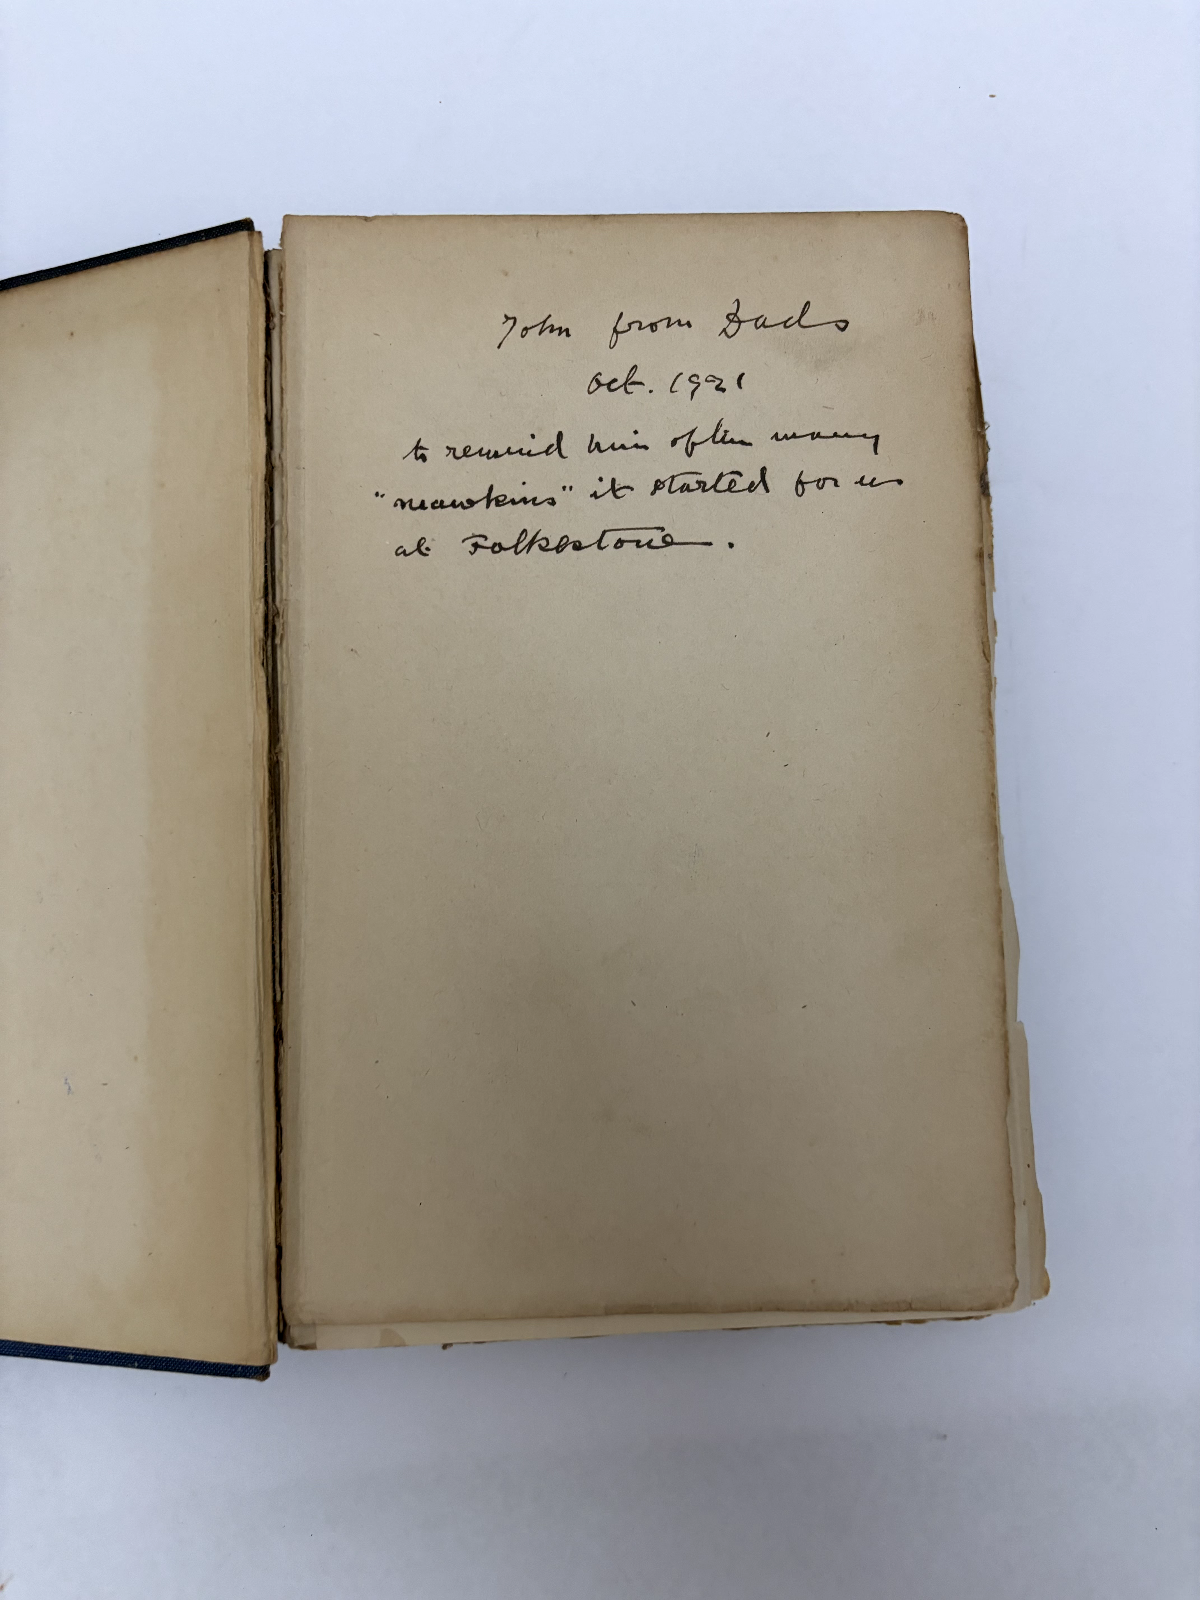 John from Dads
Oct. 1921
to remind him of the many
"mawkins" it started for us
at Folkestone.